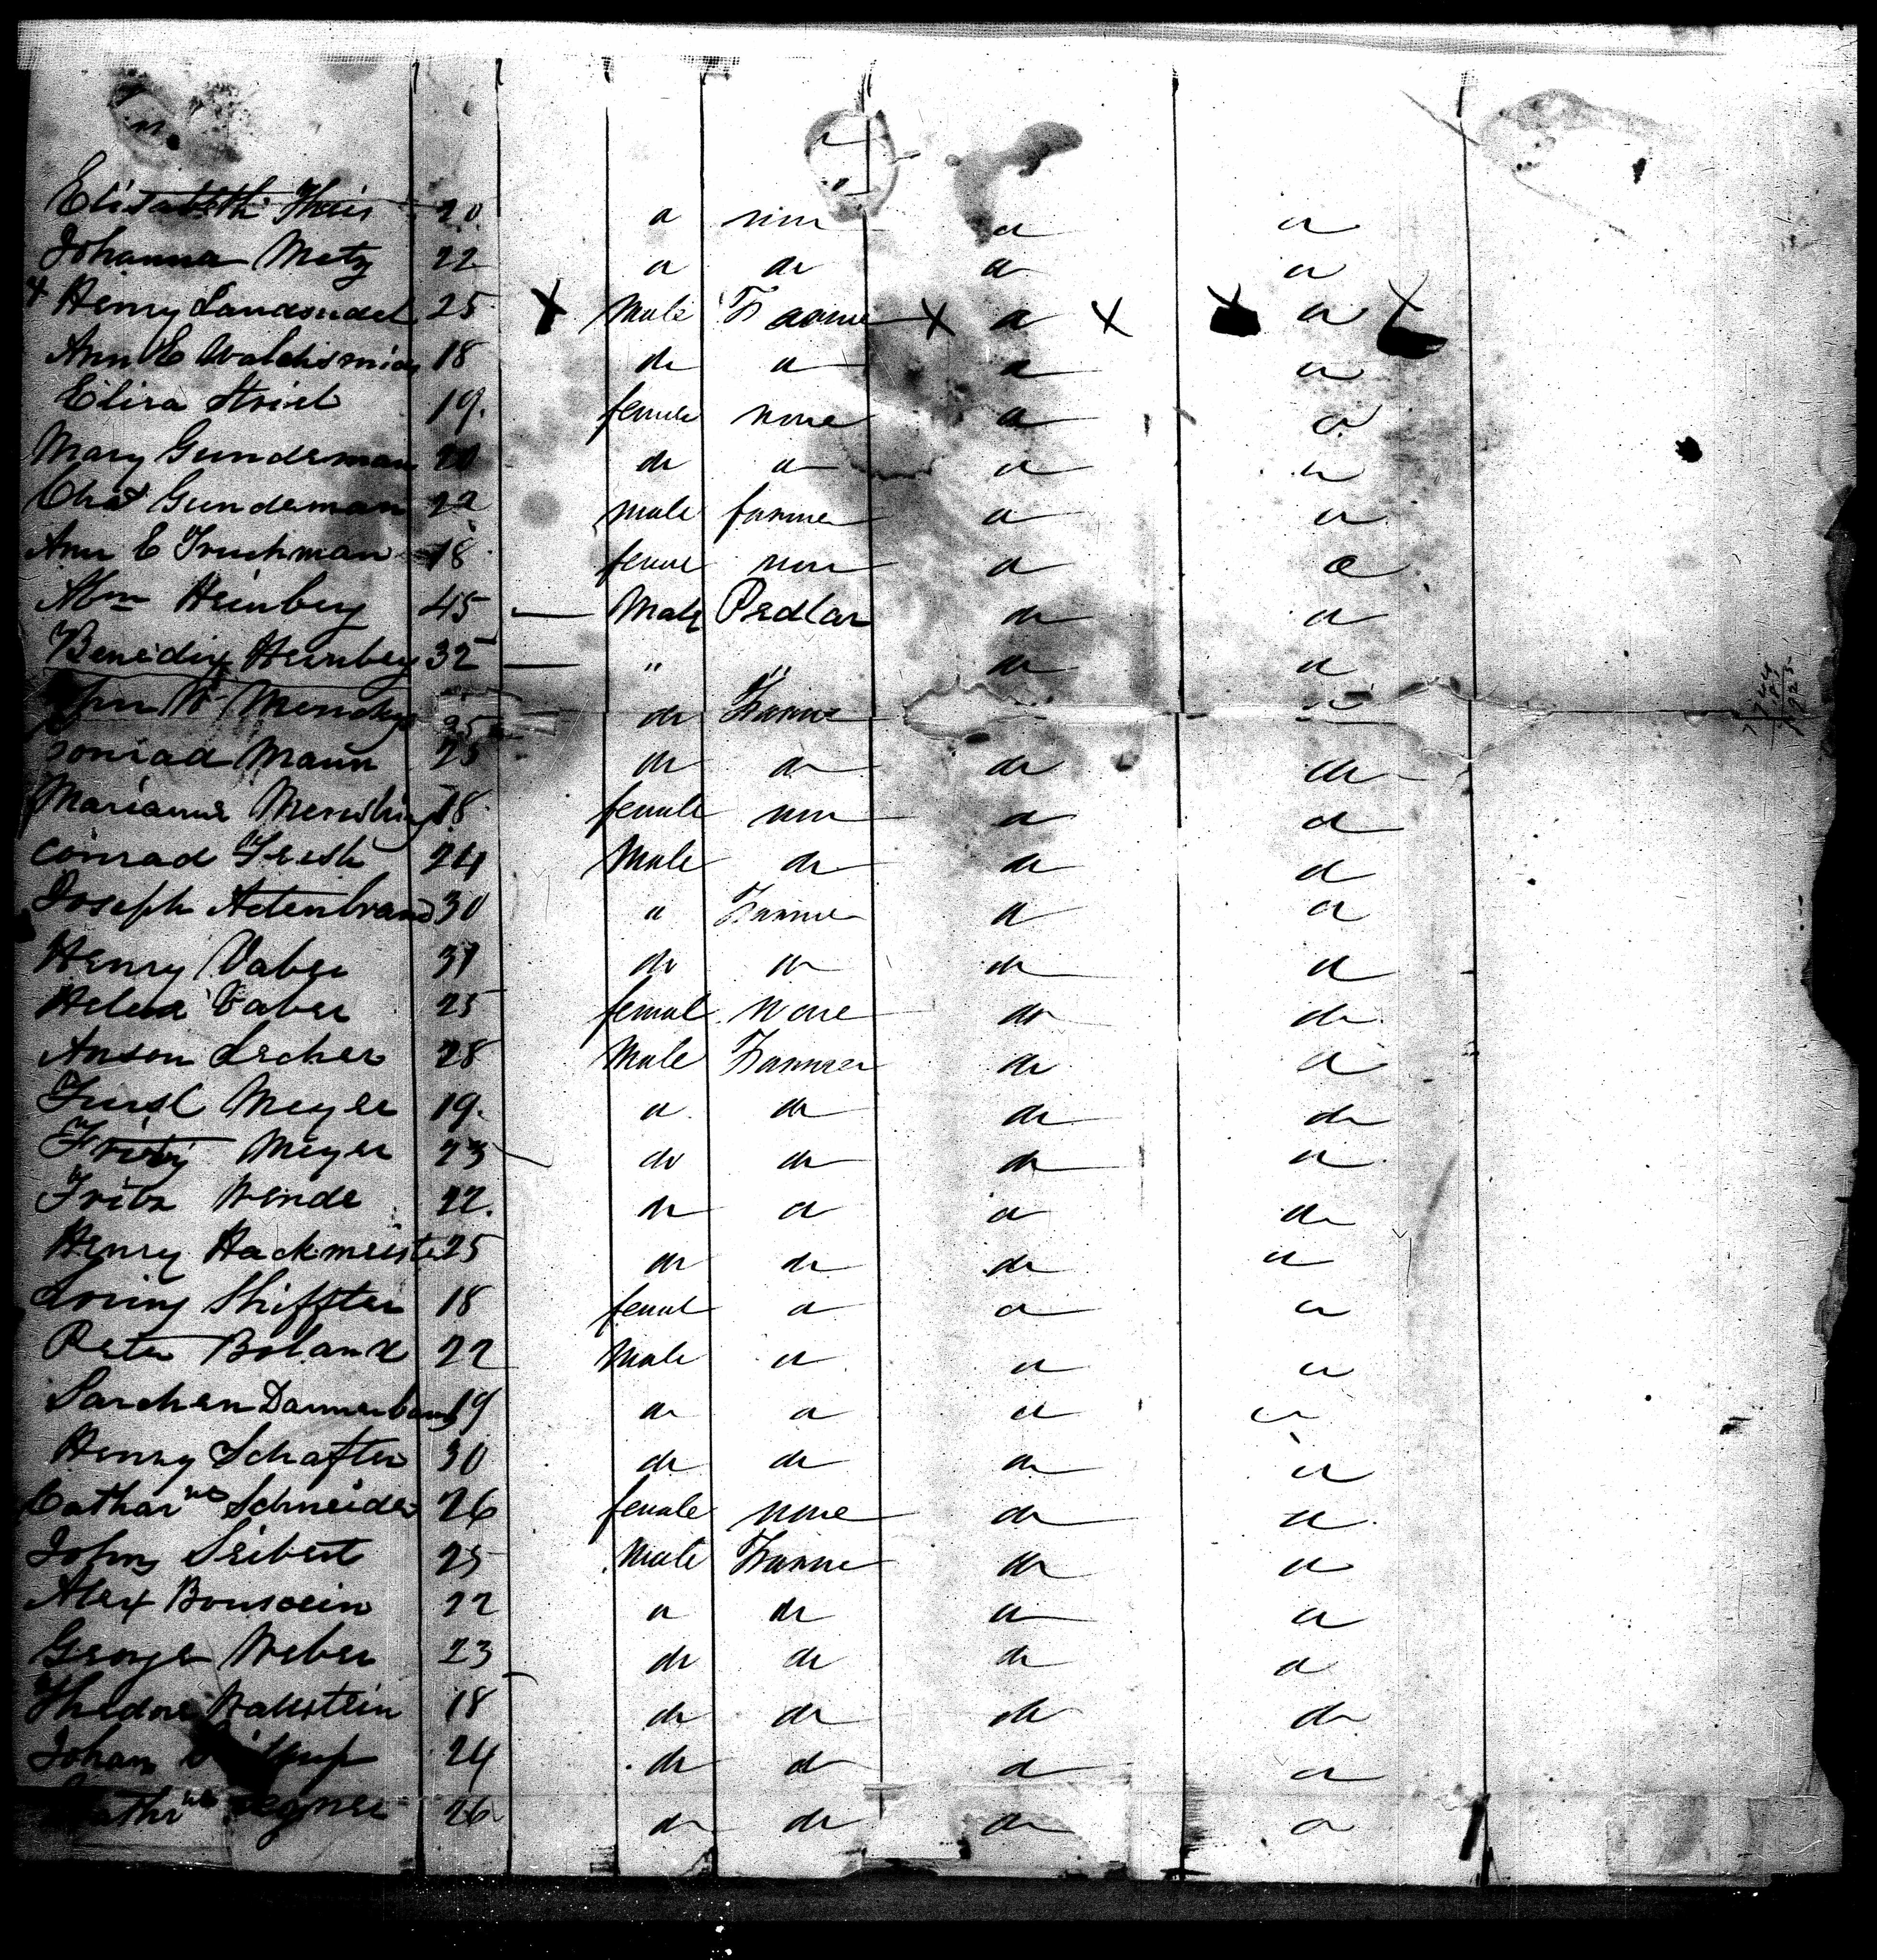 Elisabeth Theis 20 do none do do
Johanna Metz 22 do do do do
x Henry 25 X Male Farmer X do X X do X
Ann E 18 do do do do
Eliza 19. female none do do
Mary Gunderman 20 do do do do
Chas Gunderman 22 male farmer do do
Ann E 18 female none do do
Abm Heinberg 45 — Male Pedlar do do
Benedix Heinberg 32 — " " do do
John 25 do Farmer do
Conrad Mann 25 do do do do
Marianne 18 female none do do
Conrad 24 Male do do do
Joseph 30 do Farmer do do
Henry Vaber 37 do do do do
Helena Vaber 25 female none do do
Anson Lecher 28 Male Farmer do do
Meyer 19. do do do do
Meyer 23 do do do do
Fritz Wende 22. do do do do
Henry Hackmeister 25 do do do do
Shiffter 18 female do do do
Peter Boland 22 Male do do do
Sarchen 19 do do do do
Henry Schafter 30 do do do do
Catharine Schneider 26 female none do do
John Seibert 25 Male Farmer do do
Alex 22 do do do do
George Weber 23 do do do do
Thedore Wallstein 18 do do do do
Johan 24 do do do do
26 do do do do